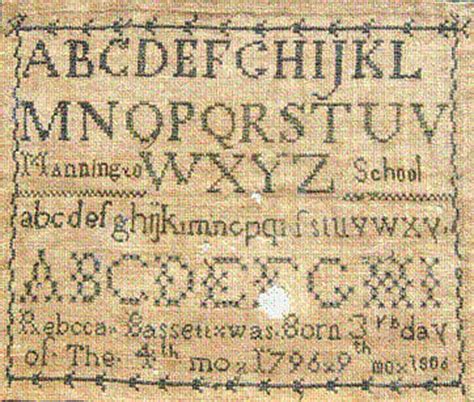 ABCDEFGHIJKL
MNOPQRSTUV
Mannington WXYZ School
abcdefghijklmnopqrſstuvwxy
ABCDEFGHI
Rebcca Bassett was Born 3rd day
of The 4th mo 1796 9th mo 1806